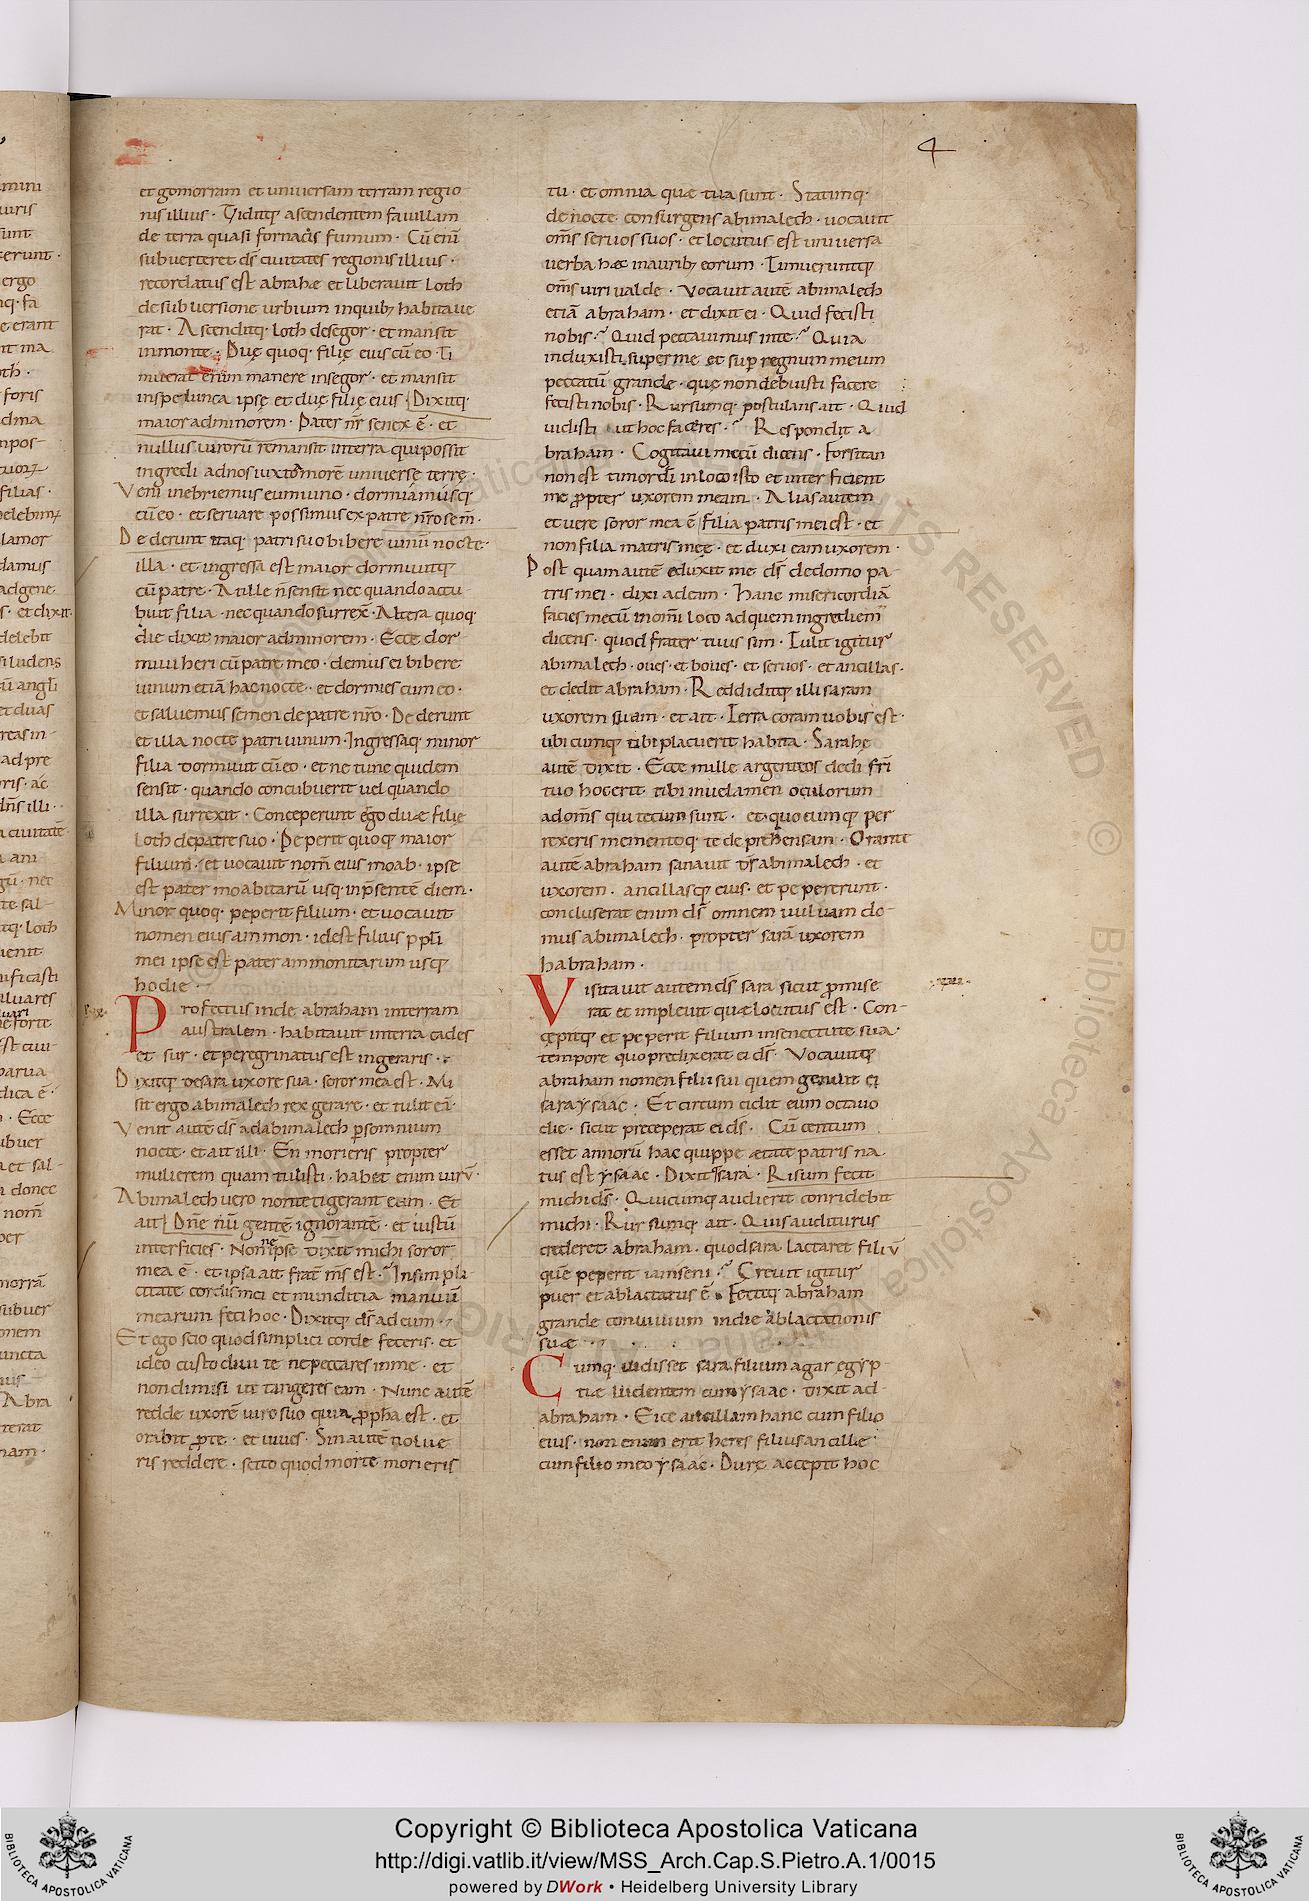 4
et gomorram et universam terram regio
nis illius · Viditq; ascendentem favillam
de terra quasi fornacis fumum · Cū eni
subverteret dś civitates regionis illius ·
recordatus est abrahe et liberavit loth
de subversione urbium inquib; habitave
rat · Ascenditq· loth desegor · et mansit
inmonte · Duę quoq· filię eius cū eo · Ti
muerat enim manere insegor · et mansit
inspelunca ipsę et duę filię eius · Dixitq·
maior adminorem · Pater nr̄ senex ē · et
nullus virorū remansit interra qui possit
ingredi adnos iuxta morē universę terrę ·
Veni inebriemus eumvino · dormiamusq·
cū eo · et servare possimus ex patre nr̄o sem̄ ·
Dederunt itaq· patri suo bibere vinū nocte·
illa · et ingressa est maior dormivitq;
cū patre · At ille n̄ sensit nec quando accu
buit filia · nec quando surrex̄ · Altera quoq·
die dixit maior adminorem · Ecce dor
mivi heri cū patre meo · demus ei bibere
vinum etiā hac nocte · et dormies cum eo ·
et salvemus semen de patre nr̄o · Dederunt
et illa nocte patri vinum · Ingressaq· minor
filia dormivit cū eo · et ne tunc quidem
sensit · quando concubuerit vel quando
illa surrexit · Conceperunt ergo duæ filię
loth depatre suo · Peperit quoq; maior
filium · et vocavit nom̄ eius moab · ipse
est pater moabitarū usq; inpr̄sentē diem ·
Minor quoq· peperit filium · et vocavit
nomen eius ammon · idest filius ppl̄i
mei ipse est pater ammonitarum usq;
hodie ·
Profectus inde abraham interram
australem · habitavit interra cades
et sur · et peregrinatus est ingeraris ·
Dixitq; desara uxore sua · soror mea est · Mi
sit ergo abimalech rex gerare · et tulit eā ·
Venit autē dś adabimalech psomnium
nocte · et ait illi · En morieris propter
mulierem quam tulisti · habet enim virū ·
Abimalech vero nontetigerant eam · Et
ait Dn̄e nū gentē ignorantē · et iustū
interficies · Nonne ipse dixit michi soror
mea ē · et ipsa ait frat̄ m̄s est · Insimpli
citate cordis mei et munditia manuū
mearum feci hoc · Dixitq; dś ad eum ·
Et ego scio quodsimplici corde feceris · et
ideo custodivi te ne peccares inme · et
nondimisi ut tangeres eam · Nunc autē
redde uxorē viro suo quia pph̄a est · et
orabit p te · et vives · Sin autē nolue
ris reddere · scito quod morte morieris
tu · et omnia quæ tua sunt · Statimq·
de nocte consurgens abimalech · vocavit
om̄s servos suos · et locutus est universa
verba hæc inaurib; eorum · Timueruntq;
om̄s viri valde · Vocavit autē abimalech
etiā abraham · et dixit ei · Quid fecisti
nobis · Quid peccavimus inte · Quia
induxisti super me et sup regnum meum
peccatū grande · quę non debuisti facere
fecisti nobis · Rursumq· postulans ait · Quid
vidisti ut hoc faceres · Respondit a
braham · Cogitavi mecū dicens · Forsitan
non est timor dī inloco isto et interficient
me ppter uxorem meam · Alias autem
et vere soror mea ē filia patris mei est · et
non filia matris meę · et duxi eam uxorem ·
Post quam autē eduxit me dś dedomo pa
tris mei · dixi adeam · Hanc misericordiā
facies mecū inom̄i loco ad quem ingrediem̄
dicens · quod frater tuus sim · Tulit igitur
abimalech · oves · et boves · et servos · et ancillas ·
et dedit abraham · Reddiditq; illi saram
uxorem suam · et ait · Terra coram vobis est ·
ubicumq; tibi placuerit habita · Sarahę
autē dixit · Ecce mille argenteos dedi fr̄i
tuo hocerit tibi invelamen oculorum
adom̄s qui tecum sunt · et quocumq; per
rexeris mementoq· te deprehensam · Orante
autē abraham sanavit dś abimalech · et
uxorem · ancillasq; eius · et pepererunt ·
concluserat enim dś omnem vulvam do
mus abimalech · propter sarā uxorem
habraham ·
Visitavit autem dś sara sicut pmise
rat et implevit quæ locutus est · Con
cępitq; et peperit filium insenectute sua ·
tempore quo predixerat ei dś · Vocavitq;
abraham nomen filii sui quem genuit ei
sara ysaac · Et circumcidit eum octavo
die · sicut preceperat ei dś · Cū centum
esset annorū hac quippe ætate patris na
tus est ysaac · Dixitq sara · Risum fecit
michi dś · Quicumq; audierit conridebit
michi · Rursumq; ait · Quis auditurus
crederet abraham · quod sara lactaret filiū
quē peperit iamseni · Crevit igitur
puer et ablactatus ē · Fecitq; abraham
grande convivium indie ablactationis
suæ
Cumq· vidisset sara filium agar egyp
tiæ ludentem cum ysaac · dixit ad
abraham · Eice ancillam hanc cum filio
eius · non enim erit heres filius ancillę
cum filio meo ysaac · Durę accepit hoc
Copyright © Biblioteca Apostolica Vaticana
http://digi.vatlib.it/view/MSS_Arch.Cap.S.Pietro.A.1/0015
powered by DWork • Heidelberg University Library
BIBLIOTECA APOSTOLICA VATICANA
BIBLIOTECA APOSTOLICA VATICANA